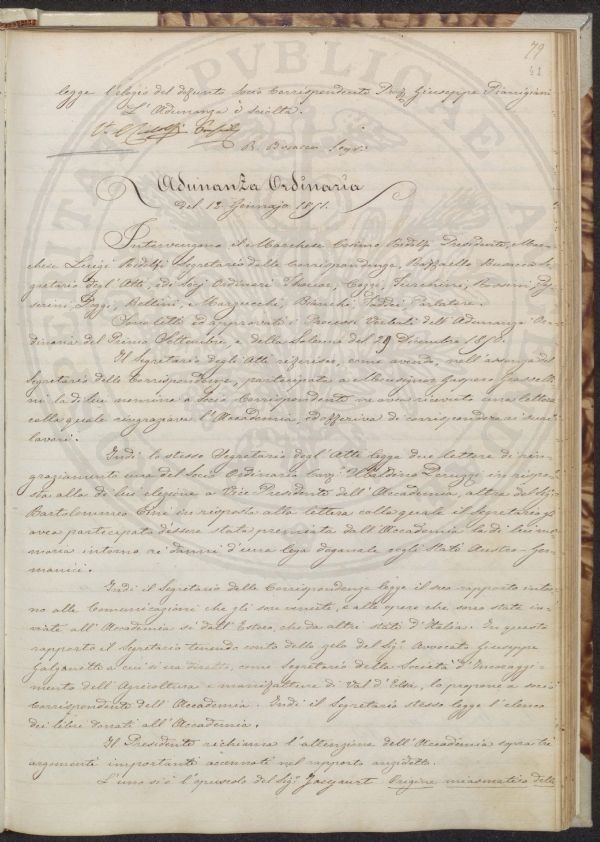 79
41
legge l'elogio del defunto Socio Corrispondente Giuseppe Pianigiani
L'Adunanza è sciolta.
V. C. Ridolfi
R. Busacca Segr.
Adunanza Ordinaria
del 12 Gennajo 1851.
Intervengono il Marchese Cosimo Ridolfi Presidente, Mar-
chese Luigi Ridolfi Segretario delle Corrispondenze, Raffaello Busacca Se-
gretario degl'Atti, ed i Socj Ordinarj Thouar, Turchini, Pas-
serini, Poggi, Bellini, Marzucchi, Bianchi
Sono letti ed approvati i Processi Verbali dell'Adunanza Or-
dinaria del Primo Settembre, e della solenne del 29 Dicembre 1850.
Il Segretario degli Atti riferisce, come avendo, nell'assenza del
Segretario delle Corrispondenze, partecipata a Monsignor Gaspero
ni la di lui nomina a Socio Corrispondente ne aveva ricevuto una lettera
colla quale ringraziava l'Accademia, ed offeriva di corrispondere ai suoi
lavori.
Indi lo stesso Segretario degl'Atti legge due lettere di rin-
graziamento una del Socio Ordinario Ubaldino Peruzzi in rispo-
sta alla di lui elezione a Vice-Presidente dell'Accademia, altra del Sig.
Bartolommeo Cini in risposta alla lettera colla quale il Segretario gli
avea partecipato d'essere stata premiata dall'Accademia la di lui me-
moria intorno ai danni d'una lega doganale cogli Stati Austro-Ger-
manici.
Indi il Segretario delle Corrispondenze legge il suo rapporto intor-
no alle Comunicazioni che gli sono venute, e alle opere che sono state in-
viate all'Accademia sì dall'Estero, che da altri stati d'Italia. In questo
rapporto il Segretario tenendo conto dello zelo del Sig. Avvocato Giuseppe
a cui si era diretto, come Segretario della Società d'Incoraggi-
mento dell'Agricoltura e manifatture di Val d'Elsa, lo propone a socio
Corrispondente dell'Accademia. Indi il Segretario stesso legge l'elenco
dei libri donati all'Accademia.
Il Presidente richiama l'attenzione dell'Accademia sopra tre
argomenti importanti accennati nel rapporto anzidetto.
L'uno si è l'opuscolo del Sig. Jacquart Origine miasmatica delle